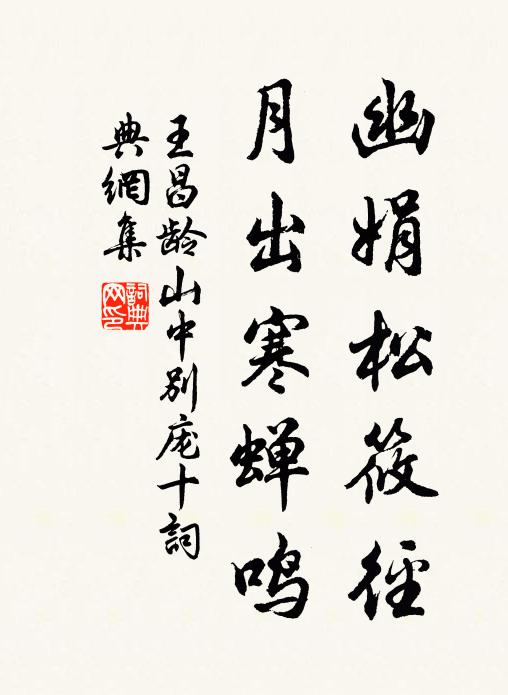 幽娟松筱徑
月出寒蝉鸣
王昌龄山中别庞十詞
典網集
詞典
网印